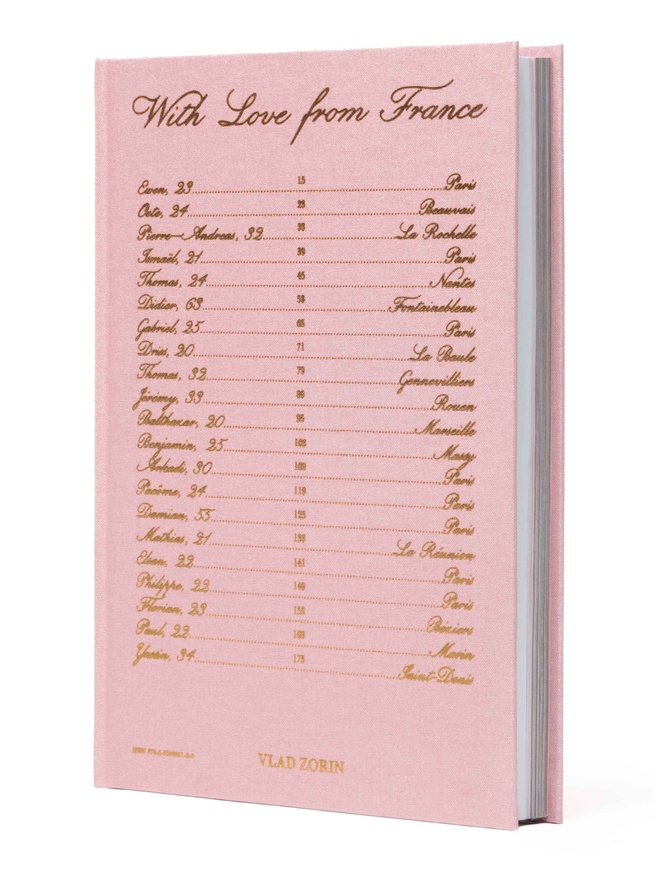 With Love from France
Ewen, 23 15 Paris
24 23 Beauvais
Pierre-Andreas, 32 33 La Rochelle
Ismaël, 21 39 Paris
Thomas, 24 45 Nantes
Didier, 63 53 Fontainebleau
Gabriel, 25 65 Paris
Dries, 20 71 La Baule
Thomas, 32 79 Gennevilliers
Jérémy, 33 Rouen
Balthazar, 20 95 Marseille
Benjamin, 25 103 Massy
Arkadi, 30 109 Paris
Pacôme, 24 119 Paris
Damian, 55 125 Paris
Mathias, 21 133 La Réunion
22 141 Paris
Philippe, 22 149 Paris
Florian, 23 Béziers
Paul, 22 Marin
34 175 Saint-Denis
ISBN
VLAD ZORIN